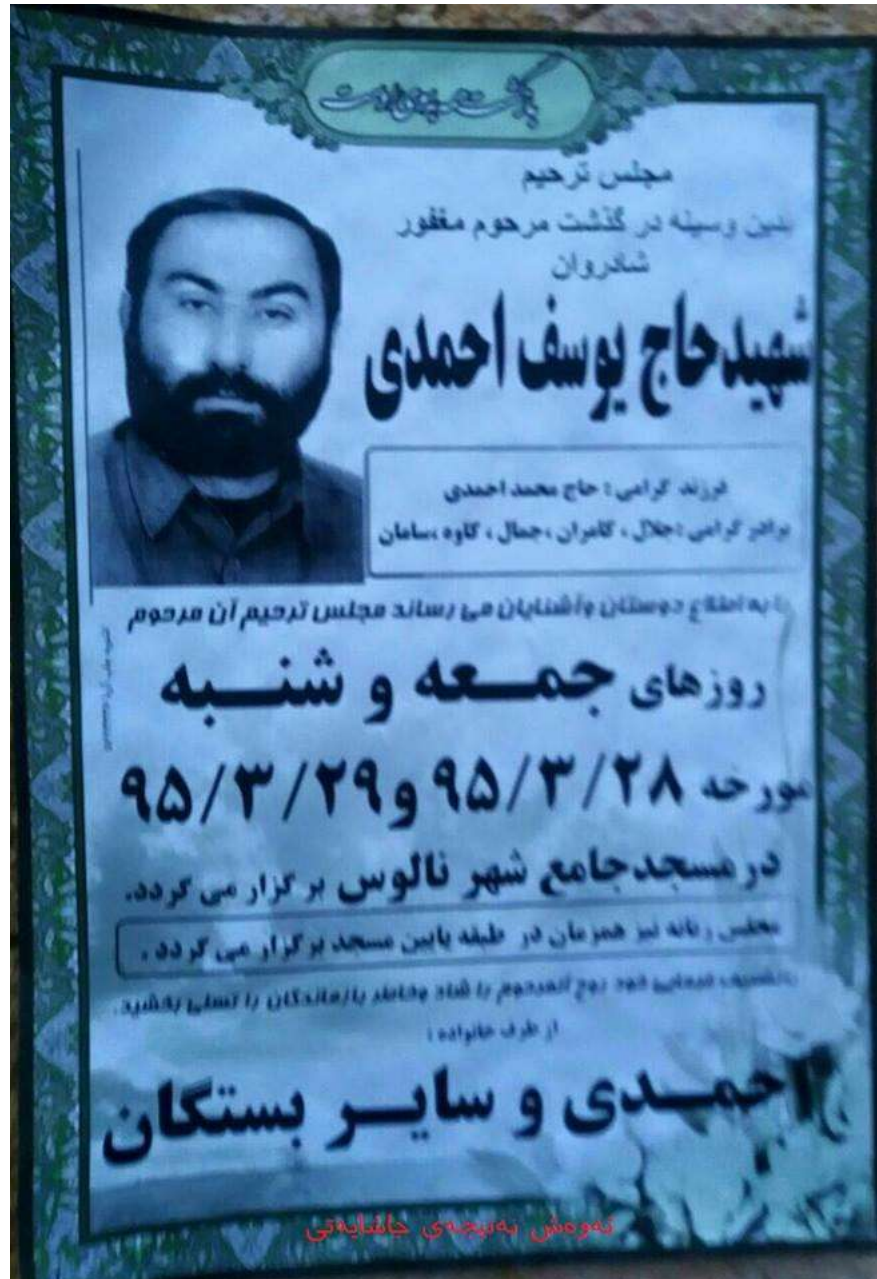 بازگشت همه بسوی اوست
مجلس ترحیم
بدین وسیله در گذشت مرحوم مغفور
شادروان
شهید حاج یوسف احمدی
فرزند گرامی : حاج محمد احمدی
برادر گرامی :جلال ، کامران ،جمال ، کاوه ،سامان
را به اطلاع دوستان وآشنایان می رساند مجلس ترحیم آن مرحوم
روزهای جمعه و شنبه
مورخه ۹۵/۳/۲۸ و ۹۵/۳/۲۹
در مسجدجامع شهر نالوس برگزار می گردد.
مجلس زنانه نیز همزمان در طبقه پایین مسجد برگزار می گردد .
باتشریف فرمایی خود روح آنمرحوم را شاد وخاطر بازماندگان را تسلی بخشید.
از طرف خانواده :
احمدی و سایر بستگان
ئەوەش نەتیجەی جاشایەتی